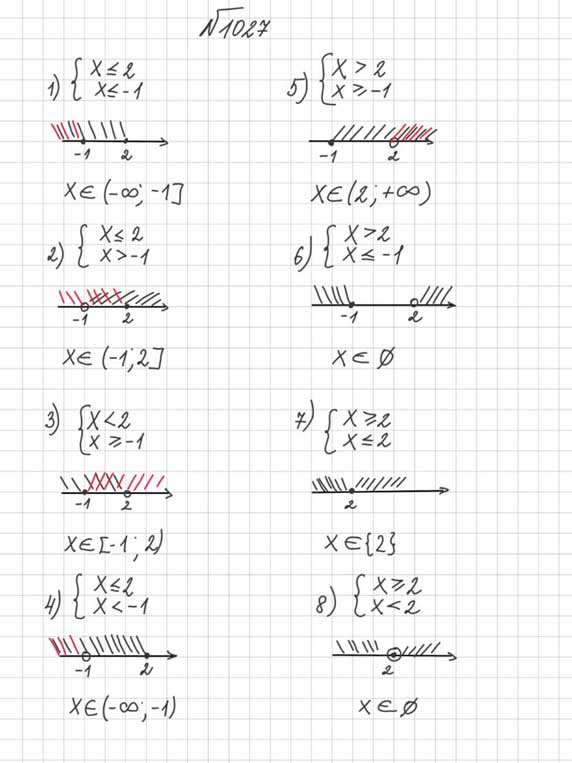 №1027
1) { x ≤ 2
x ≤ -1
-1 2
x ∈ (-∞; -1]
2) { x ≤ 2
x > -1
-1 2
x ∈ (-1; 2]
3) { x < 2
x ≥ -1
-1 2
x ∈ [-1; 2)
4) { x ≤ 2
x < -1
-1 2
x ∈ (-∞; -1)
5) { x > 2
x ≥ -1
-1 2
x ∈ (2; +∞)
6) { x > 2
x ≤ -1
-1 2
x ∈ ∅
7) { x ≥ 2
x ≤ 2
2
x ∈ {2}
8) { x ≥ 2
x < 2
2
x ∈ ∅